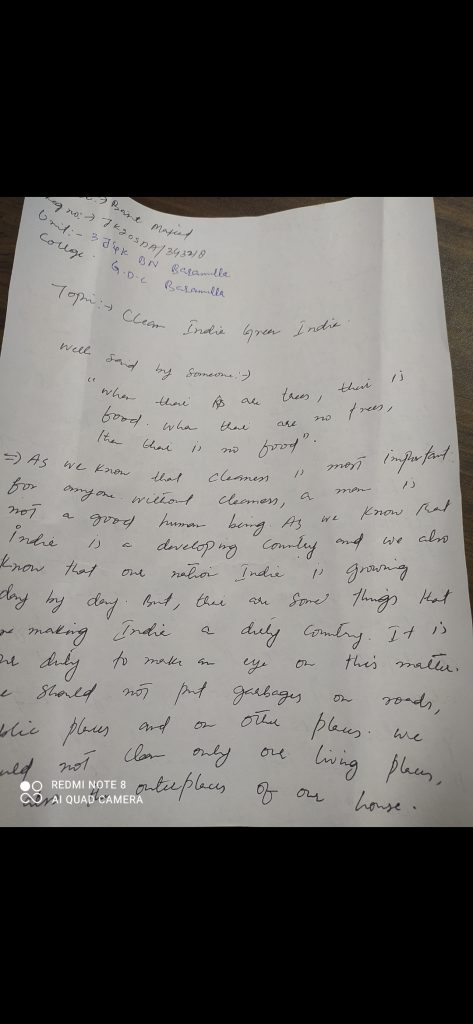 Majeed
no:→ JK20SDA/343210
Unit:- 3 J&K BN Baramulla
College. G.D.C Baramulla
Topic:→ Clean India Green India.
Well said by someone:→
"when their are trees, their is
food. when their are no trees,
then their is no food".
⇒ As we know that cleaness is most important
for anyone. without cleaness, a man is
not a good human being As we know that
India is a developing country and we also
know that our nation India is growing
day by day. But, their are some things that
making India a dirty country. It is
duty to make an eye on this matter.
should not put garbages on roads,
places and on other places. we
not clean only our living places,
outerplaces of our house.
REDMI NOTE 8
AI QUAD CAMERA